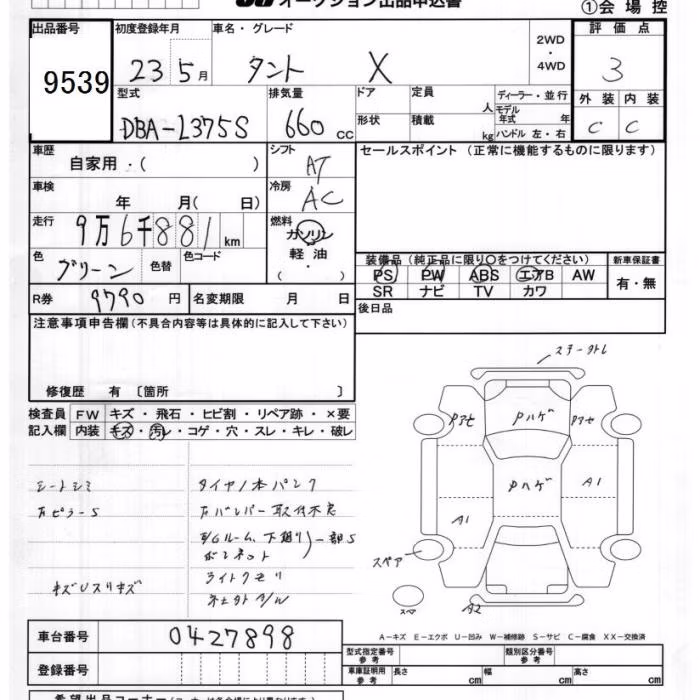 オークション出品申込書
①会場控
出品番号 初度登録年月 車名・グレード 2WD・4WD 評価点
9539 23 5月 タント X 3
型式 排気量 ドア 定員 人 ディーラー・並行 外装 内装
DBA-L375S 660 CC 形状 積載 kg モデル年式 年 ハンドル 左・右 C C
車歴 自家用・( ) シフト AT セールスポイント (正常に機能するものに限ります)
車検 年 月( 日) 冷房 AC
走行 9万6千881km 燃料 ガソリン・軽油・( )
色 グリーン 色替 色コード
装備品 (純正品に限り○をつけてください) 新車保証書
PS PW ABS エアB AW 有・無
SR ナビ TV カワ
R券 9790 円 名変期限 月 日 後日品
注意事項申告欄(不具合内容等は具体的に記入して下さい)
修復歴 有 〔箇所 〕
検査員 FW キズ・飛石・ヒビ割・リペア跡・×要
記入欄 内装 キズ・汚レ・コゲ・穴・スレ・キレ・破レ
シートシミ タイヤ1本パンク
右ピラーS 右バンパー取付不良
E/Gルーム、下廻り 一部S
ボンネット
キズUスリキズ ライトクモリ
ステータトレ
Pアセ Pハゲ Pアセ
Pハゲ A1
A1
スペア
スペア A2
車台番号 0427898
A-キズ E-エクボ U-凹み W-補修跡 S-サビ C-腐食 XX-交換済
登録番号 型式指定番号 参考 類別区分番号 参考
車庫証明用 参考 長さ cm 幅 cm 高さ cm
希望出品コーナー